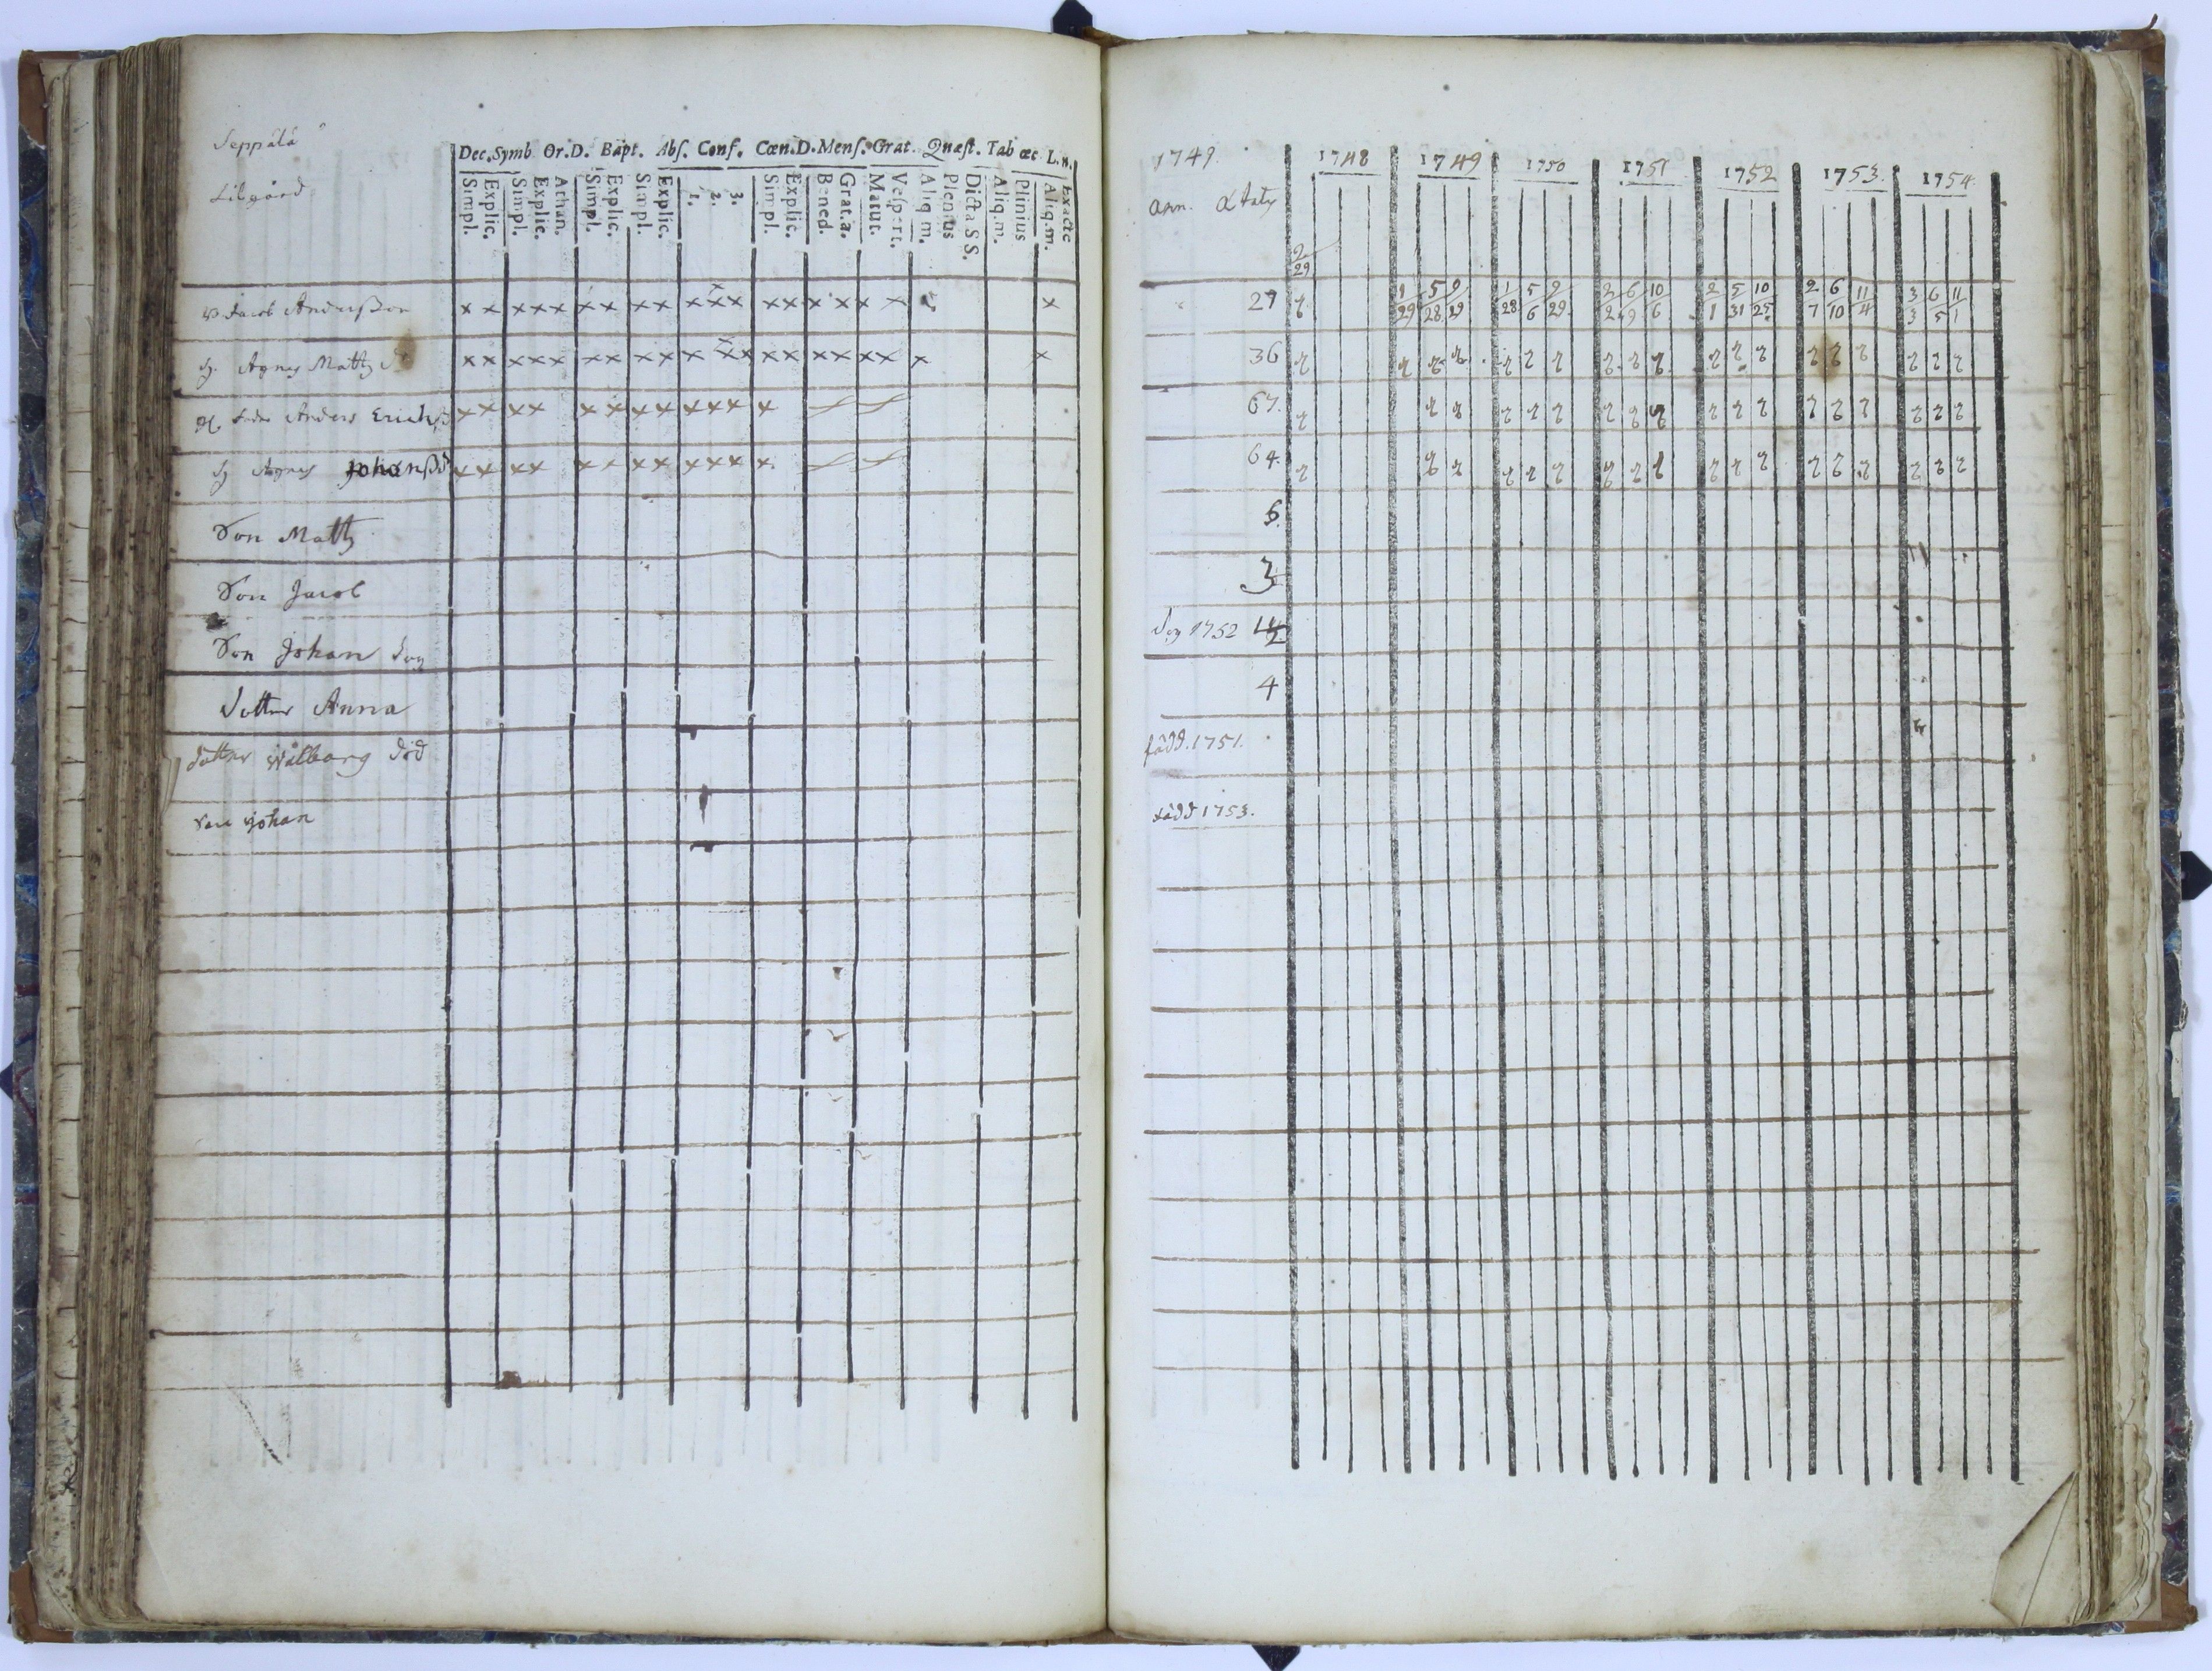 Seppälä
Lilgård
Dec. Symb. Or.D. Bapt. Abs. Conf. Cœn.D. Mens. Grat. Quæst. Tab œc L.n.
Simpl. Explic. Simpl. Explic. Athan. Simpl. Explic. Simpl. Explic. 1. 2. 3. Simpl. Explic. Bened. Grat.a. Matut. Vespert. Aliq.m. Plenius Dicta SS. Aliq.m. Plinius Aliq.m. Exacte
Jacob Andersson x x x x x x x x x x x x x x x x x x x
h. Agnes Matts d. x x x x x x x x x x x x x x x x x x x x
Anders Erichss x x x x x x x x x x x x
h Agnes Johansd x x x x x x x x x x x x
Son Matts
Son Jacob
Son Johan dog
dotter Anna
dotter Walborg död
Son Johan
1749. 1748 1749 1750 1751 1752 1753. 1754.
ann. ætatis
2/29
27 1/29 5/28 9/29 1/28 5/6 9/29 2/2 6/9 10/6 2/1 5/31 10/25 2/7 6/10 11/4 3/3 6/5 11/1
36
67.
64.
6.
3
dog 1752
4
född. 1751.
född 1753.